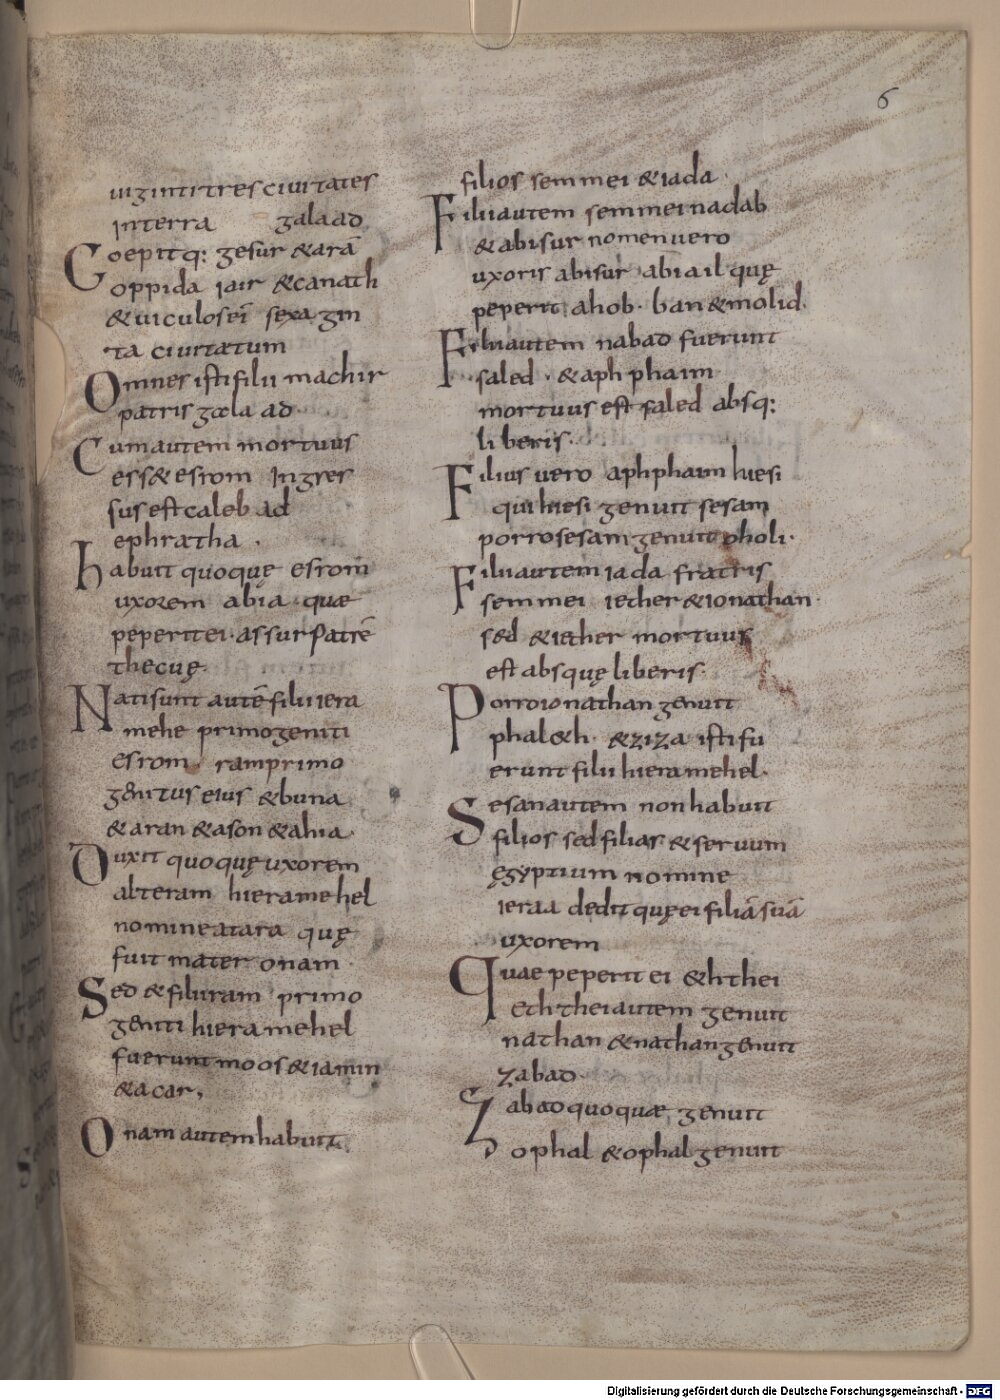 6
uigintitres ciuitates
interra galaad
Coepitq: gesur &arā
oppida iair &canath
&uiculoseī sexagin
ta ciuitatum
Omnes isti filii machir
patris galaad
Cum autem mortuus
ess& esrom Ingres
sus est caleb ad
ephratha .
habuit quoquę esrom
uxorem abia quae
peperit ei. assur patrē
thecuę.
Nati sunt autē filii iera
mehe primogeniti
esrom. ram primo
genitus eius &buna
&aran &ason &ahia.
Duxit quoquę uxorem
alteram hieramehel
nomine atara quę
fuit mater onam.
Sed &filii ram primo
geniti hieramehel
fuerunt moos &iamin
&acar,
Onam autem habuit
filios semmei &iada.
Filii autem semmei nadab
&abisur nomen uero
uxoris abisur abiail quę
peperit ahob. ban &molid.
Filii autem nabad fuerunt
saled. &aphphaim
mortuus est saled absq:
liberis.
Filius uero aphphaim hiesi
qui hiesi genuit sesam
porro sesam genuit oholi.
Filii autem iada fratris
semmei iether &ionathan.
sed &iether mortuus
est absquę liberis.
Porro ionathan genuit
phal&h. &ziza isti fu
erunt filii hieramehel.
Sesan autem non habuit
filios sed filias &seruum
ęgyptium nomine
ieraa dedit quę ei filiā suā
uxorem
Quae peperit ei &hthei
eththei autem genuit
nathan &nathan genuit
zabad
Zabad quoquae genuit
ophal &ophal genuit
Digitalisierung gefördert durch die Deutsche Forschungsgemeinschaft - DFG